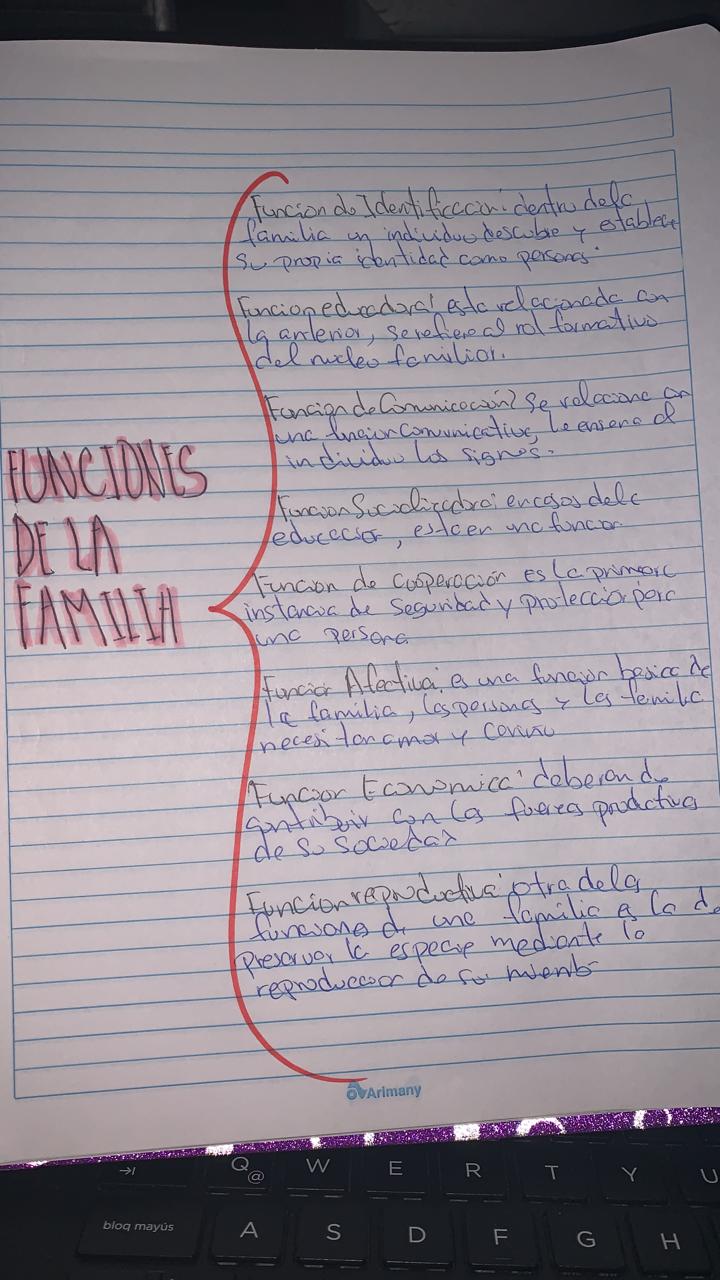 FUNCIONES
DE LA
FAMILIA
Funcion de Identificacion: dentro dela
familia un individuo descubre y establece
su propia identidad como persona.
Funcion educadora: esta relacionada con
la anterior, se refiere al rol formativo
del nucleo familiar.
Funcion de Comunicación: Se relaciona con
una funcion comunicativa, le enseña al
individuo los signos.
Funcion Socializadora: dela
educacion, una funcion
Funcion de cooperación es la primera
instancia de seguridad y proteccion para
una persona
Funcion Afectiva: es una funcion basica de
la familia, las personas y la familia
necesitan amor y cariño
Funcion Economica: deberan de
contribuir con las fuerza productiva
de su sociedad
Funcion reproductiva: otra dela
funciones de una familia es la de
preservar la especie mediante la
reproduccion de su miemb
Arimany
Q
@
W
E
R
T
Y
U
bloq mayús
A
S
D
F
G
H